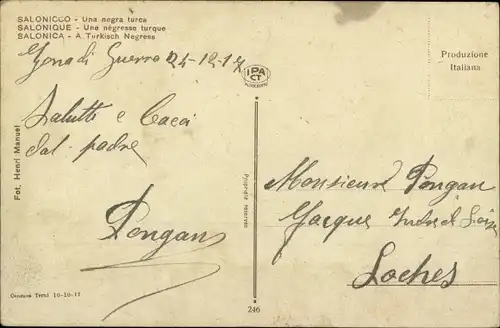 SALONICCO - Una negra turca
SALONIQUE - Une négresse turque
SALONICA - A Turkisch Negress
Zona di Guerra 24-12-17
IPA
CT
Produzione
Italiana
Salutti e Baci
dal padre
Pongan
Fot. Henri Manuel
Proprietà riservata
Monsieur Pongan
Jacque Indre et Loire
Loches
Censura Terni 10-10-17
246